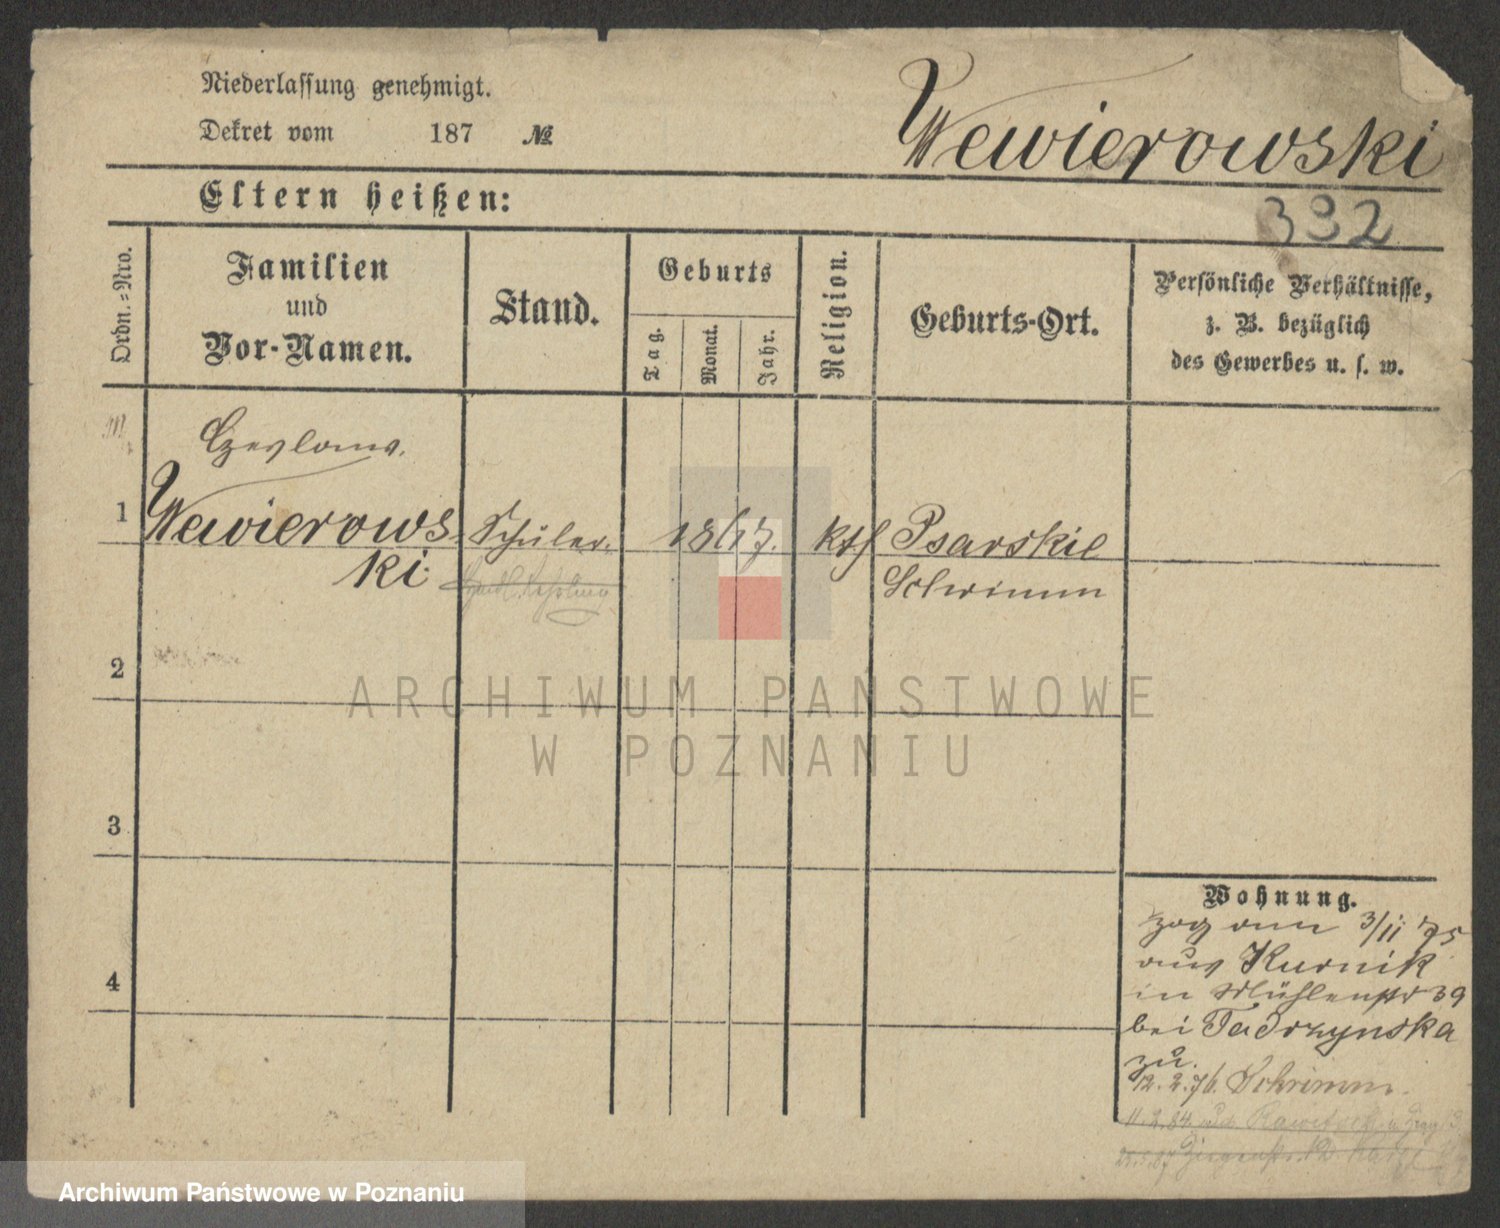 Niederlassung genehmigt.
Dekret vom 187 №
Wewierowski
Eltern heißen:
332
Ordn.=Nro.
Familien
und
Vor-Namen.
Stand.
Geburts
Tag.
Monat.
Jahr.
Religion.
Geburts-Ort.
Persönliche Verhältnisse,
z. B. bezüglich
des Gewerbes u. s. w.
1
Wewierows
ki
Schüler.
kth
Psarskie
Schrimm
2
3
4
Wohnung.
zog am 3/11 75
aus Kurnik
in Mühlenstr 39
bei
zu.
12.2.76. Schrimm.
11.2.84
ARCHIWUM PAŃSTWOWE
W POZNANIU
Archiwum Państwowe w Poznaniu